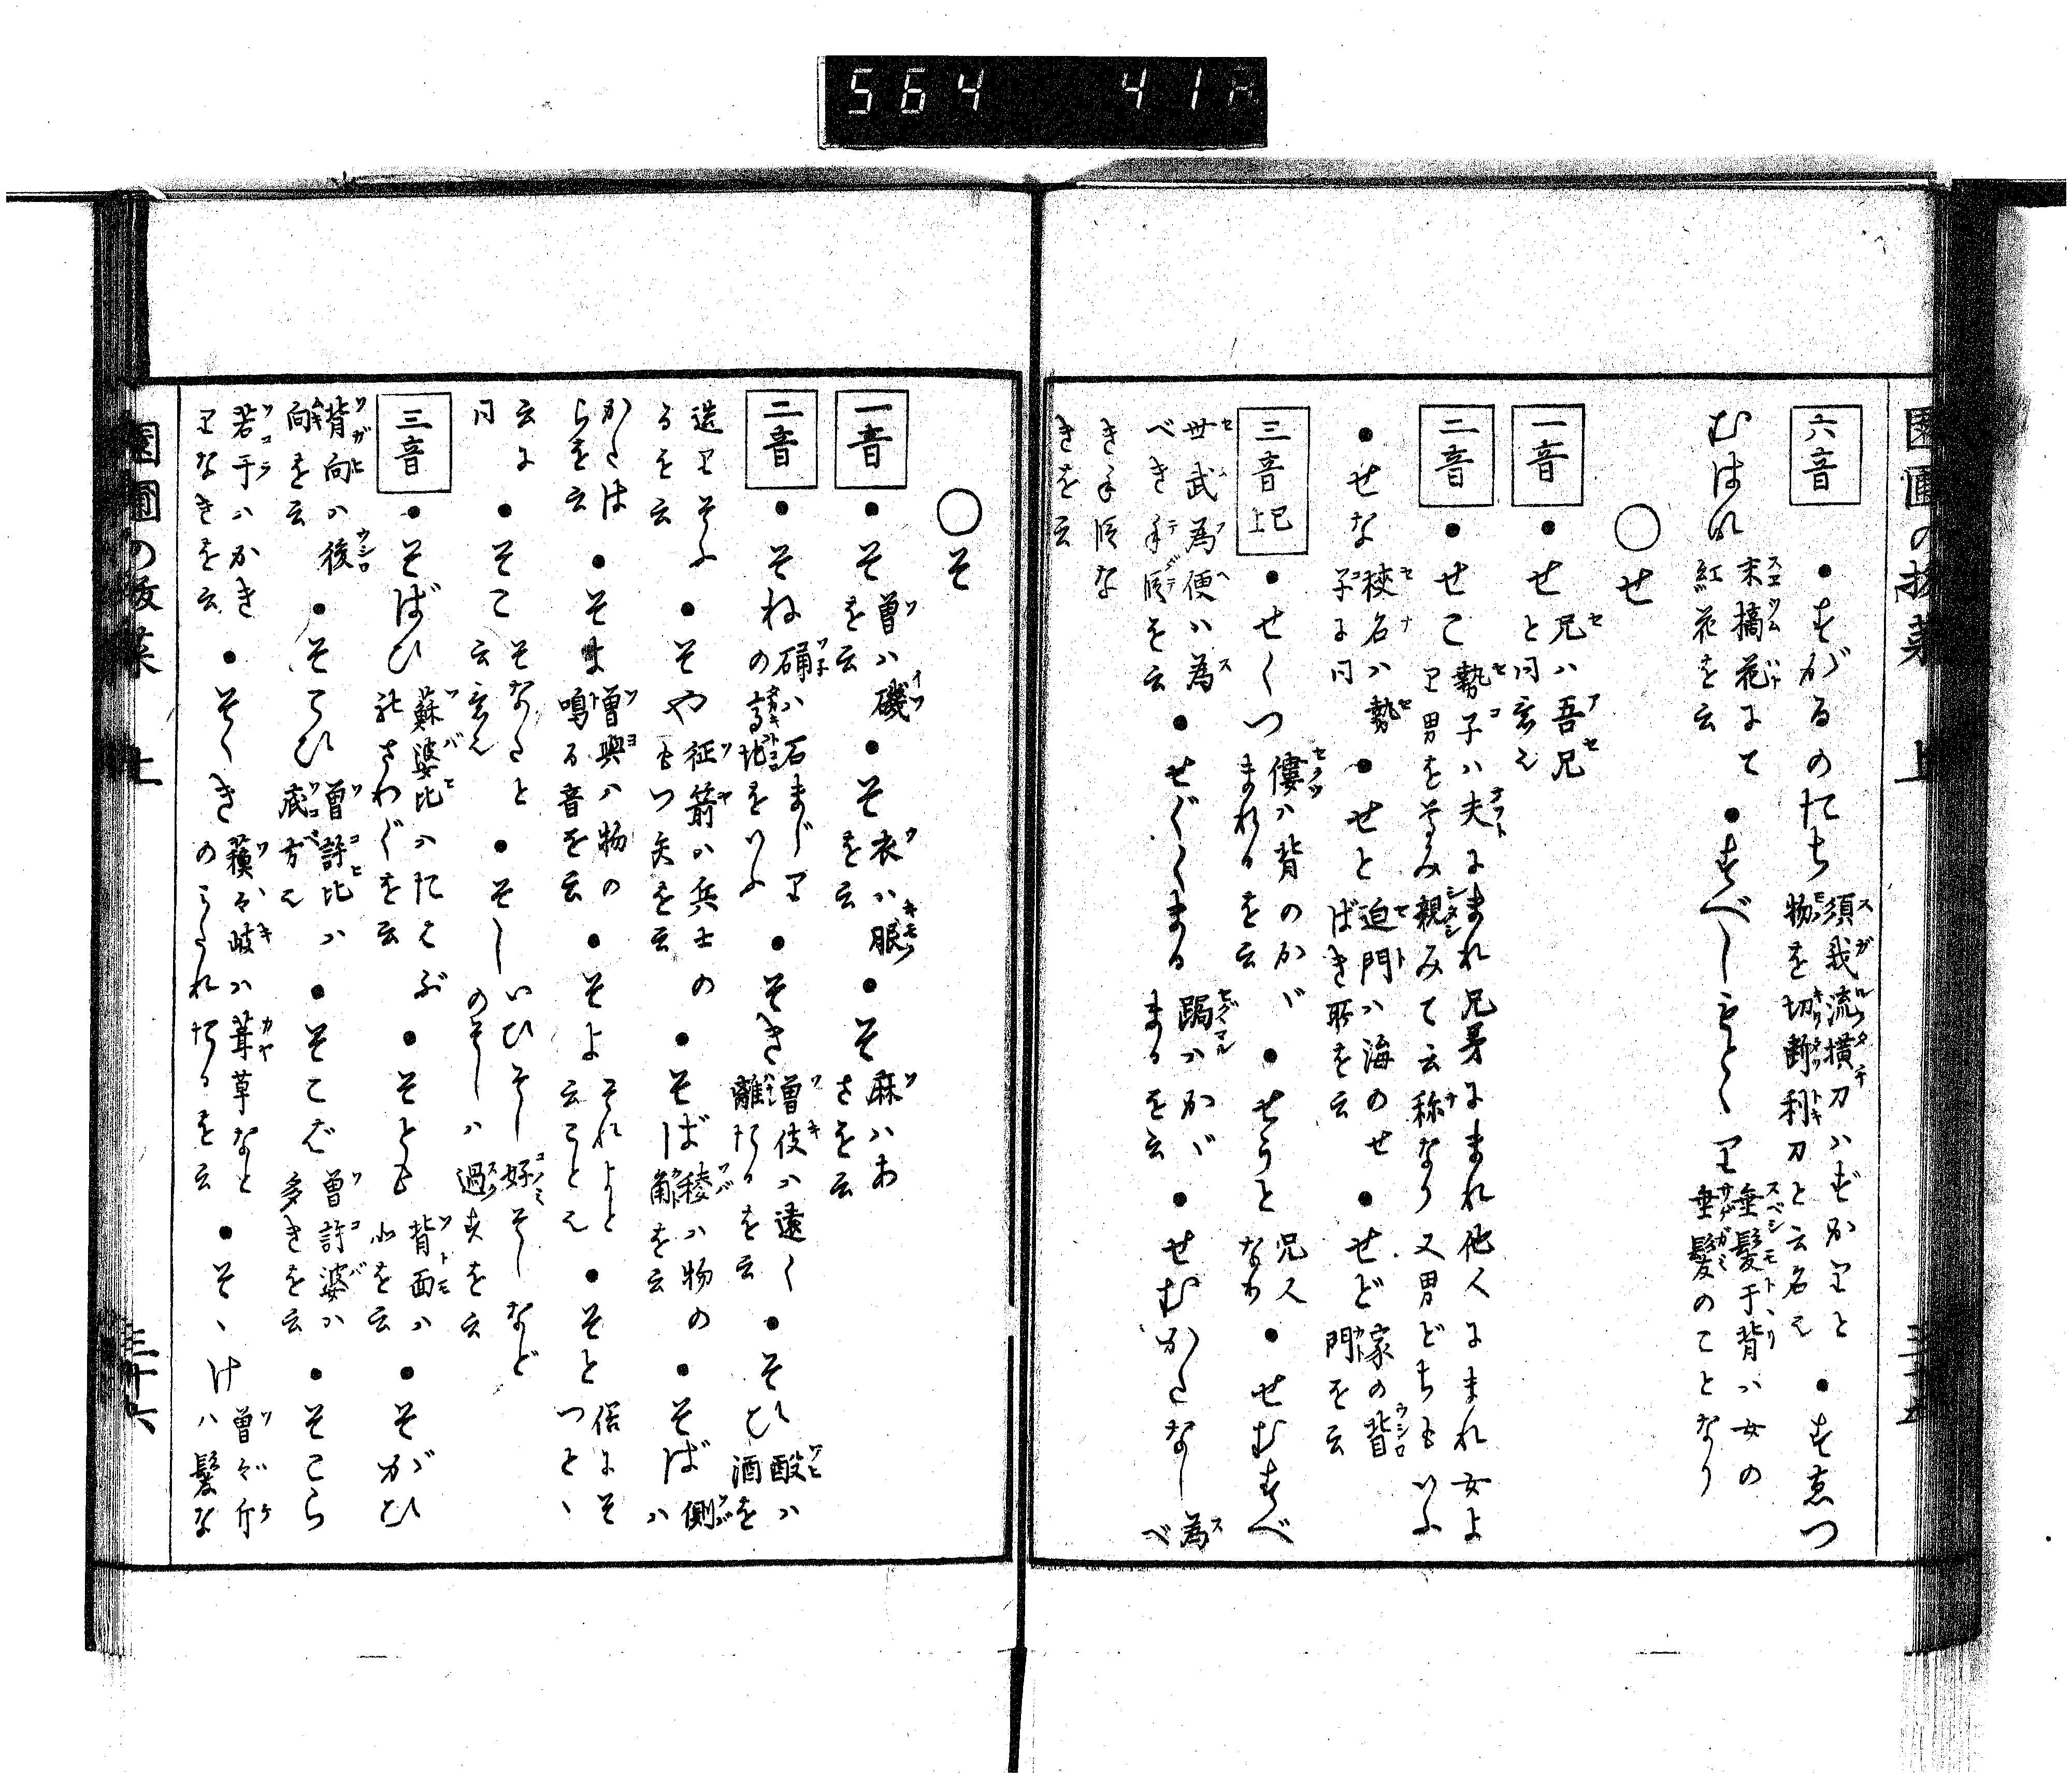 564 41A
六音 ●すがるのたち 須我流横刀ハすがりと
物を切断利刀と云名え ●すゑつ
むはな 末摘花にて
紅花を云 ●すべしもとゝり 垂髪于背ハ女の
垂髪のことなり
○せ
一音 ●せ 兄ハ吾兄
と同意え
二音 ●せこ 勢子ハ夫にまれ兄弟にまれ他人にまれ女よ
り男を尊み親みて云称なり又男どちもいふ
●せな 夫名ハ勢
子に同 ●せと 迫門ハ海のせ
ばき所を云 ●せど 家の背
門を云
三音 已上 ●せくつ 僂ハ背のかゞ
まれるを云 ●せうと 兄人
なり ●せむすべ
世武為便ハ為
べき手段を云 ●せぐゝまる 跼ハかゞ
まるを云 ●せむかたなし 為べ
き手段な
きを云
○そ
一音 ●そ 曽ハ磯
を云 ●そ 衣ハ服
を云 ●そ 麻ハあ
さを云
二音 ●そね 确ハ石まじり
の地をいふ ●そき 曽伎ハ遠く
離たるを云 ●そひ 酘ハ
酒を
造りそふ
るを云 ●そや 征箭ハ兵士の
もつ矢を云 ●そば 稜ハ物の
角を云 ●そば 側ハ
かたは
らを云 ●そよ 曽與ハ物の
鳴る音を云 ●そよ それよと
云ことえ ●そと 俗にそ
つとゝ
云に
同 ●そこ そなたと
云意え ●そし いひそし好みそしなど
のそしハ過を云
三音 ●そばひ 蘇婆比ハたはぶ
れさわぐを云 ●そとも 背面ハ
北を云 ●そがひ
背向ハ後
向を云 ●そこひ 曽許比ハ
底方え ●そこば 曽許婆ハ
多きを云 ●そこら
若干ハかき
りなきを云 ●そゝき ハ葺草なと
のみたれたるを云 ●そゝけ ハ髪な
三十六